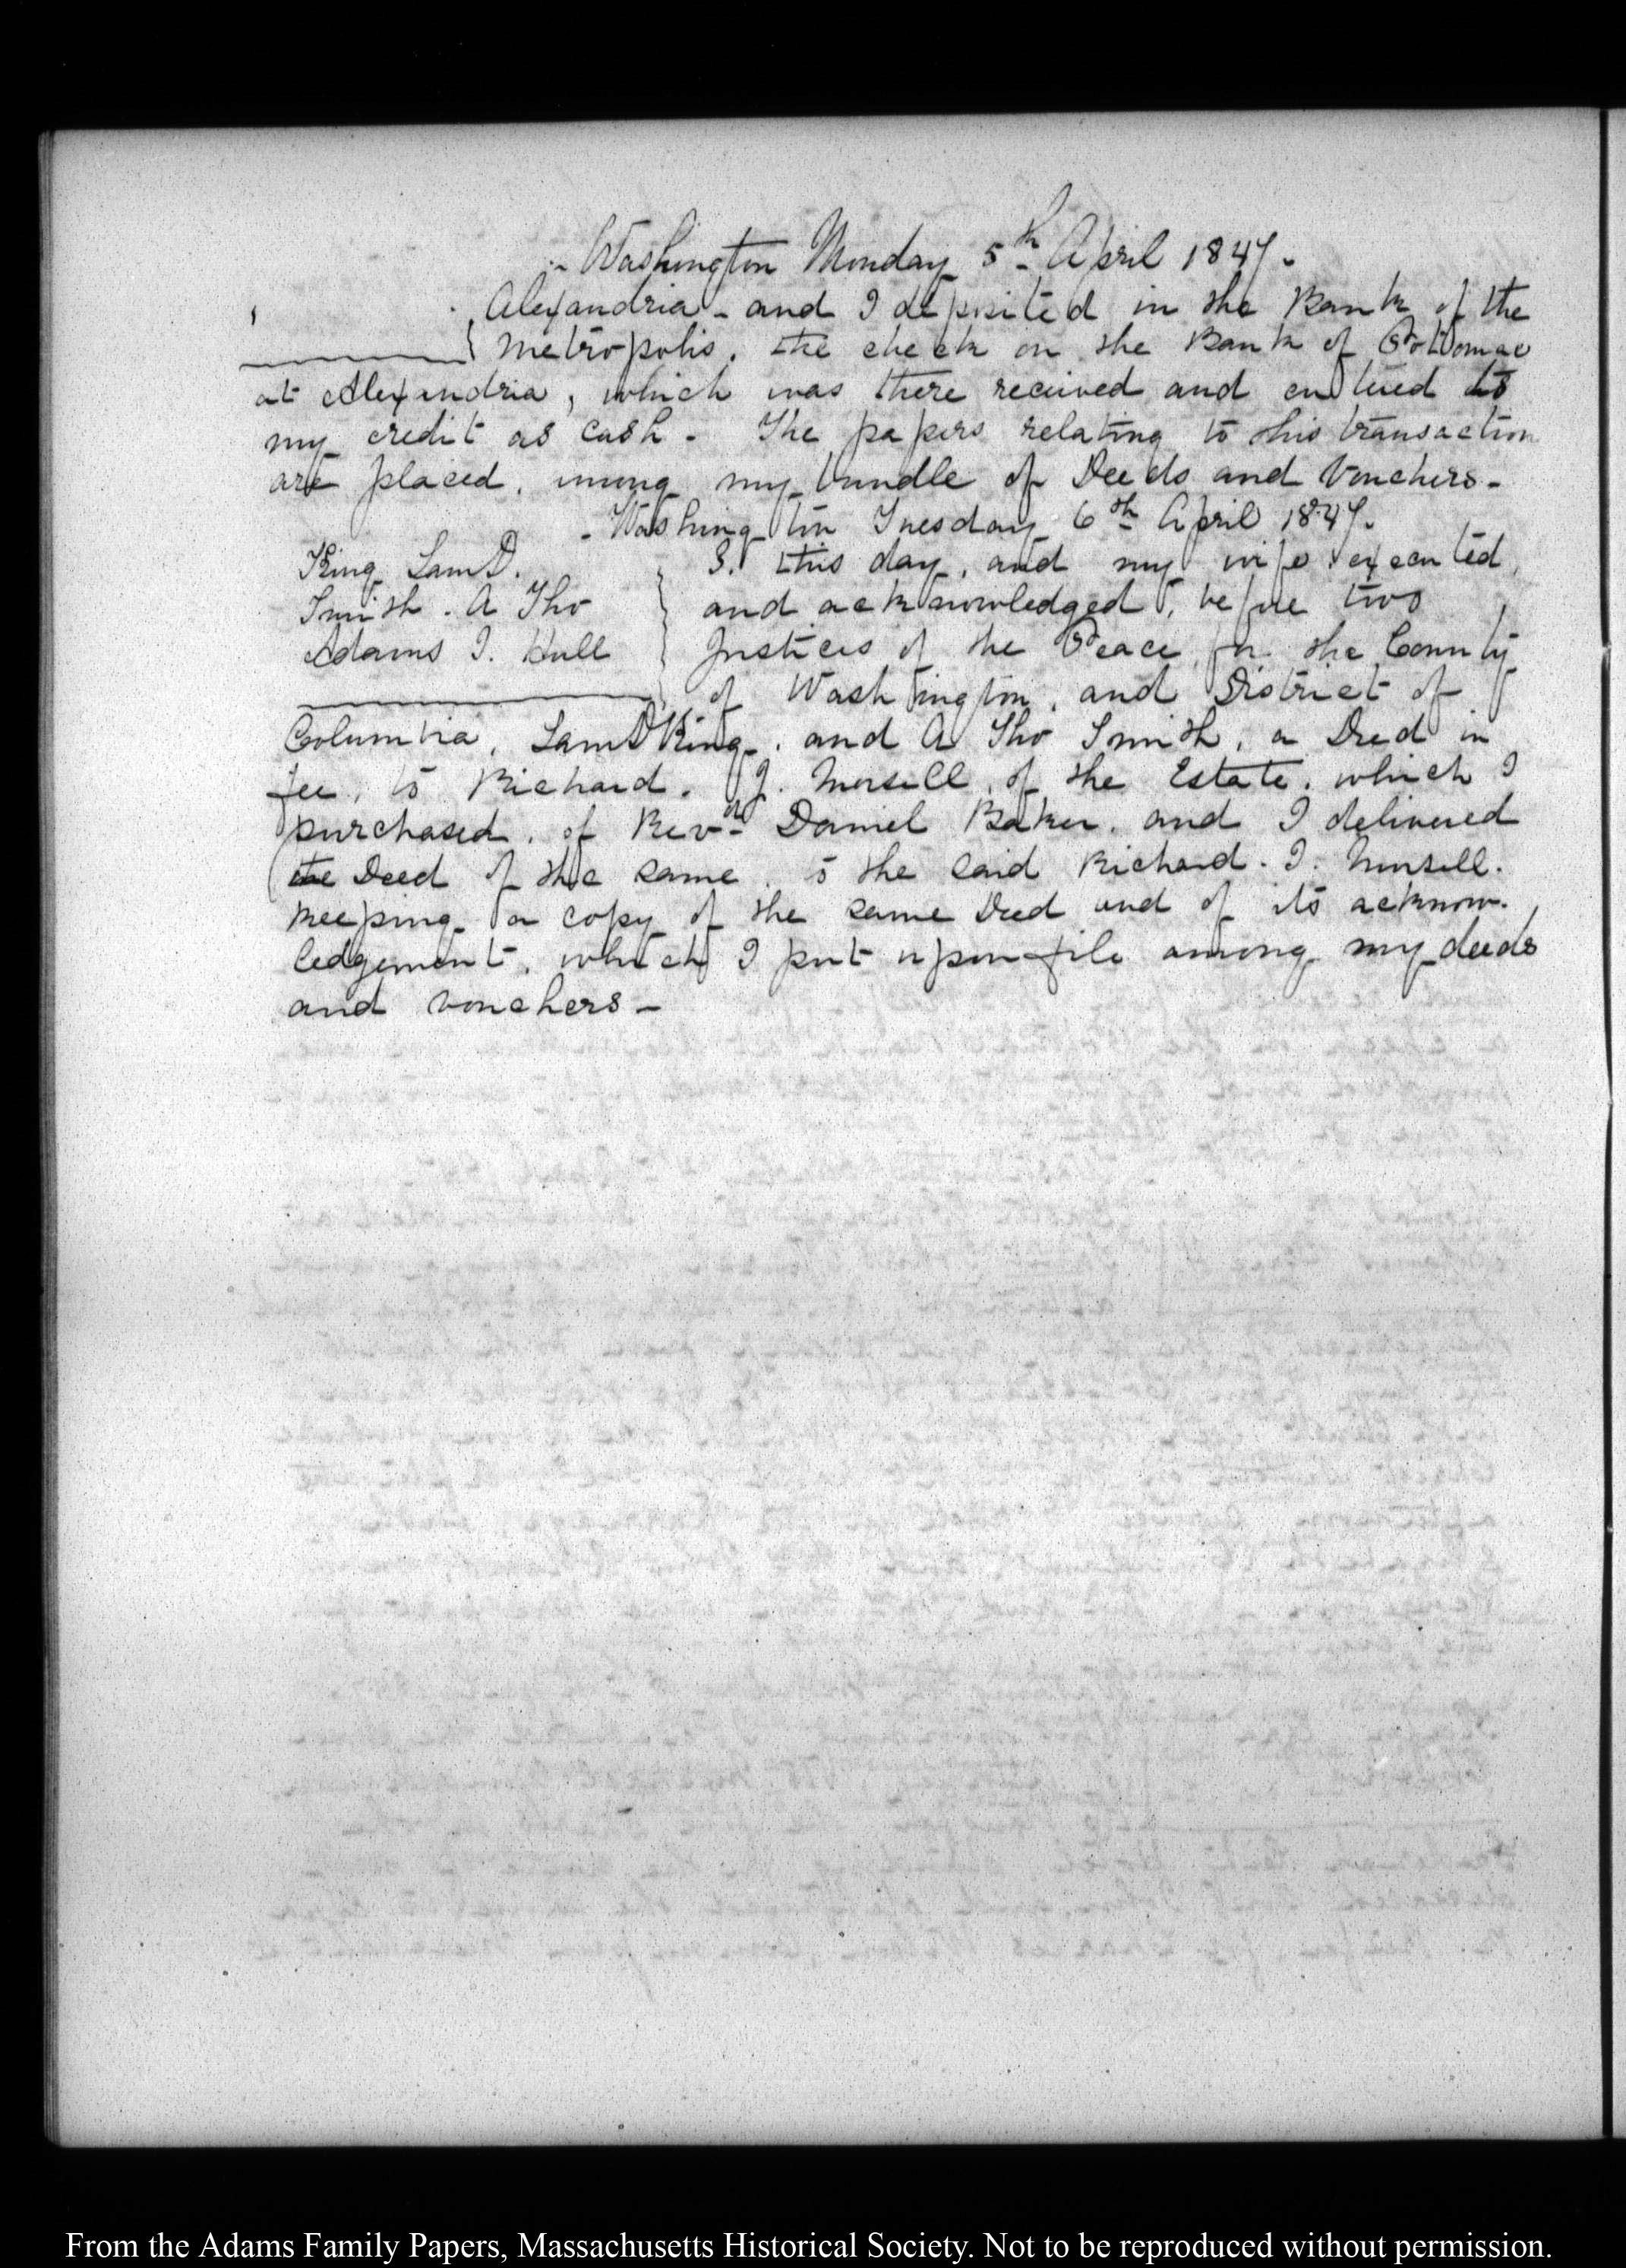 - Washington Monday 5th April 1847.
Alexandria - and I deposited in the Bank of the
Metropolis, the check on the Bank of Pottomac
at Alexandria, which was there received and entered to
my credit as Cash - The papers relating to this transaction
are placed, among my bundle of Deeds and Vouchers -
- Washington Tuesday 6th April 1847.
King Saml D.
Smith. A Tho
Adams I. Hull
I. this day, and my wife executed,
and acknowledged, before two
Justices of the Peace, for the County
of Washington, and District of
Columbia, Saml D King, and A Tho Smith, a Deed in
fee, to Richard. J. Morsell, of the Estate, which I
purchased, of Revd Daniel Baker, and I delivered
the Deed of the same, to the said Richard. J. Morsell.
Keeping a copy of the same Deed and of its acknow-
ledgement, which I put upon file among my deeds
and vouchers -
From the Adams Family Papers, Massachusetts Historical Society. Not to be reproduced without permission.